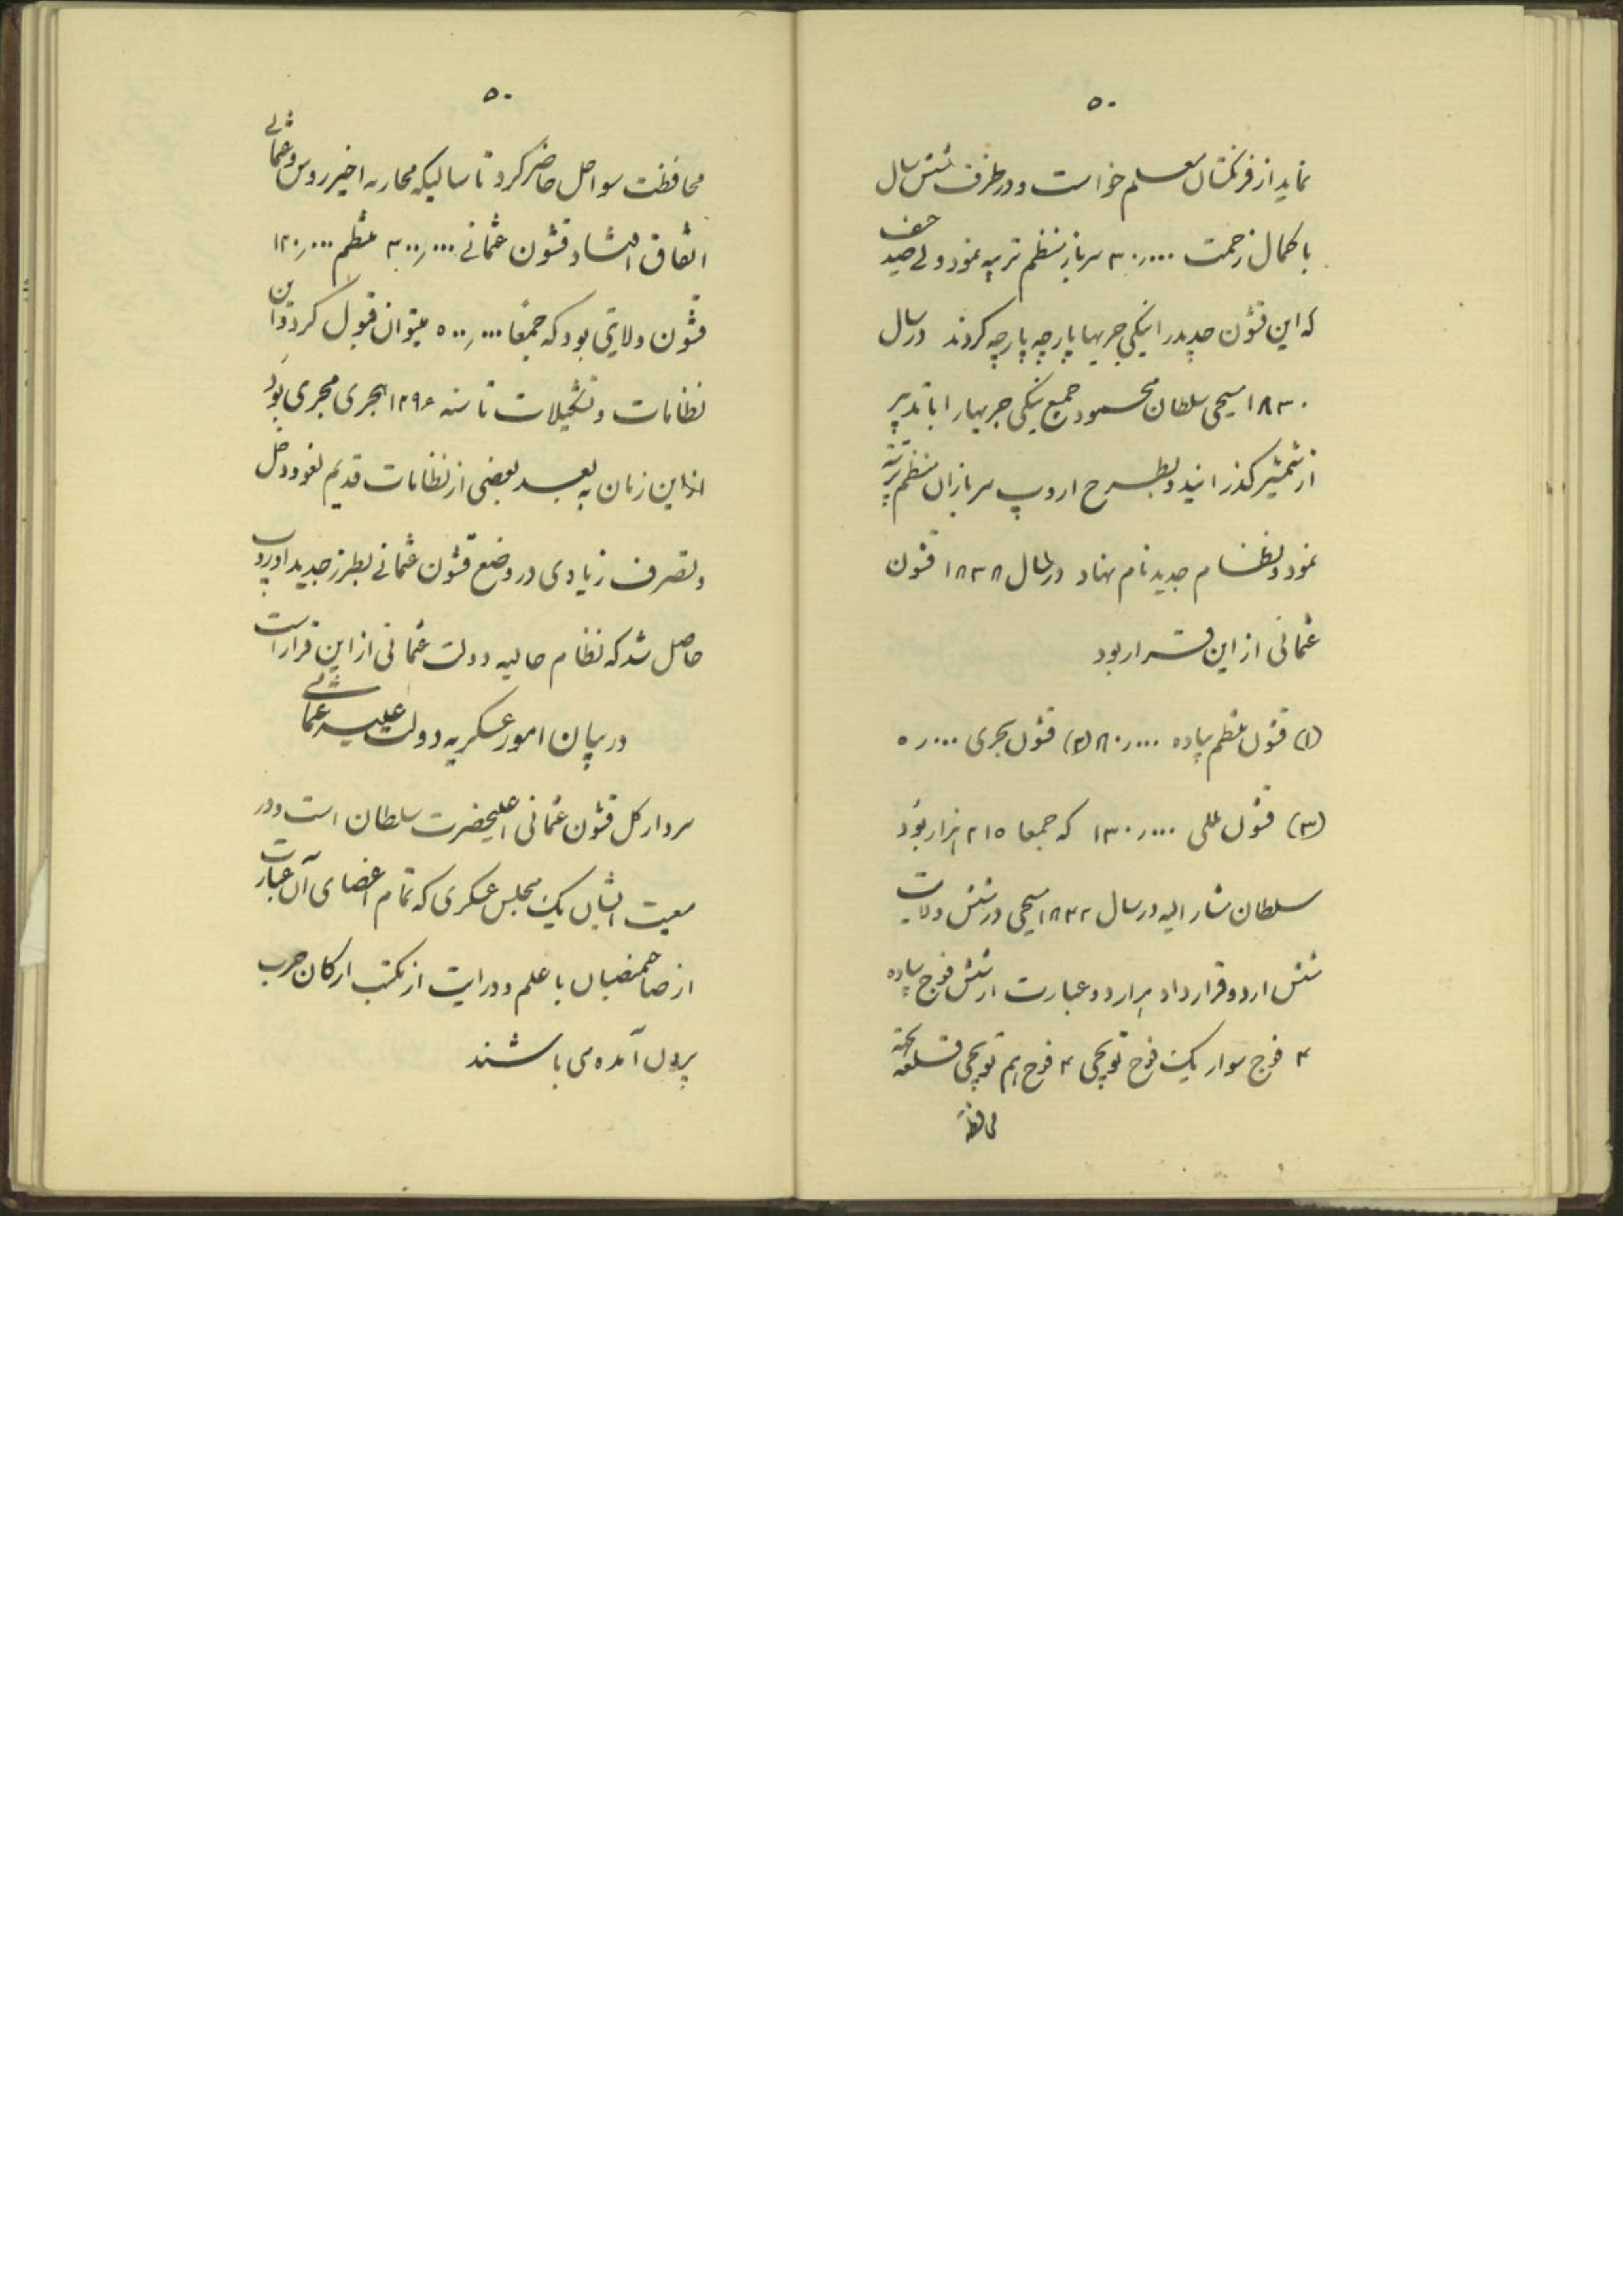 ۵۰
نماید از فرنگستان معلم خواست و در ظرف شش سال
با کمال زحمت ۳۰٫۰۰۰ سرباز منظم تربیه نمود ولی صد حیف
که این قشون جدید را ینگی جریها پارچه پارچه کردند در سال
۱۸۳۰ مسیحی سلطان محمود جمیع ینگی جریها را با تدبیر
از شمشیر گذرانید و بطرح اروپ سربازان منظم تربیه
نمود و نظام جدید نام نهاد در سال ۱۸۳۸ قشون
عثمانی از این قرار بود
(۱) قشون منظم پیاده ۸۰٫۰۰۰ (۲) قشون بحری ۵٫۰۰۰
(۳) قشون مللی ۱۳۰٫۰۰۰ که جمعا ۲۱۵ هزار بود
سلطان مشار الیه در سال ۱۸۴۲ مسیحی در شش ولایت
شش اردو قرار داد هر اردو عبارت از شش فوج پیاده
۴ فوج سوار یک فوج توپچی ۴ فوج هم توپچی قلعه بجهة
محافظة
۵۰
محافظت سواحل حاضر کرد تا سالیکه محاربه اخیر روس و عثمانی
اتفاق افتاد قشون عثمانی ۳۰۰٫۰۰۰ منظم ۱۲۰٫۰۰۰
قشون ولایتی بود که جمعاً ۵۰۰٫۰۰۰ میتوان قبول کرد و این
نظامات و تشکیلات تا سنه ۱۲۹۶ هجری مجری بود
از این زمان به بعد بعضی از نظامات قدیم لغو و دخل
و تصرف زیادی در وضع قشون عثمانی بطرز جدید اوروپ
حاصل شد که نظام حالیه دولت عثمانی از این قرار است
در بیان امور عسکریه دولت علیه عثمانی
سردار کل قشون عثمانی اعلیحضرت سلطان است و در
معیت ایشان یک مجلس عسکری که تمام اعضای آن عبارت
از صاحمنصبان با علم و درایت از مکتب ارکان حرب
بیرون آمده می باشند